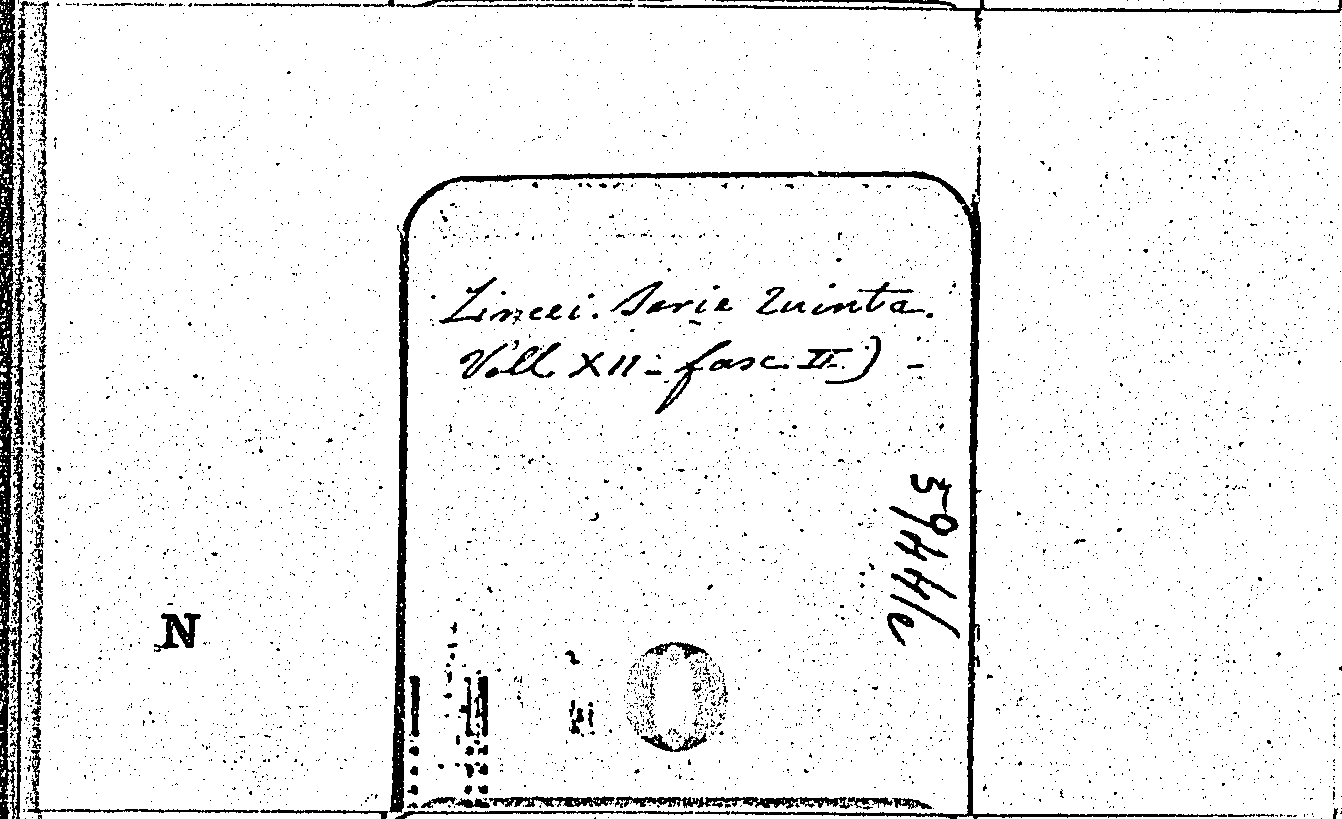 Lincei. Serie Quinta.
Voll. XII - fasc. II.) -
5944/c
N